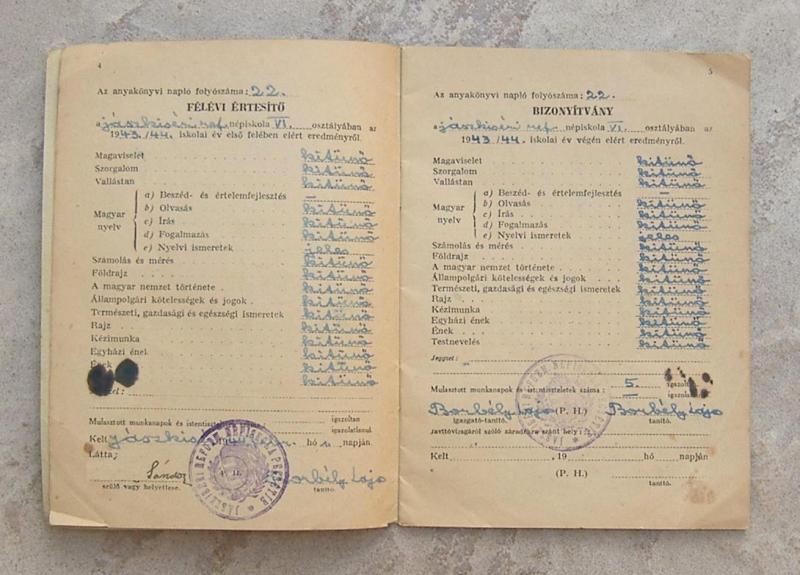 4
Az anyakönyvi napló folyószáma: 22.
FÉLÉVI ÉRTESÍTŐ
a jászkiséri ref. népiskola VI. osztályában az
1943/44. iskolai év első felében elért eredményről.
Magaviselet kitünő
Szorgalom kitünő
Vallástan kitünő
Magyar nyelv
a) Beszéd- és értelemfejlesztés —
b) Olvasás kitünő
c) Írás kitünő
d) Fogalmazás kitünő
e) Nyelvi ismeretek jeles
Számolás és mérés kitünő
Földrajz kitünő
A magyar nemzet története kitünő
Állampolgári kötelességek és jogok kitünő
Természeti, gazdasági és egészségi ismeretek kitünő
Rajz kitünő
Kézimunka kitünő
Egyházi ének kitünő
Ének kitünő
kitünő
Mulasztott munkanapok és istentiszteletek igazoltan
igazolatlanul
Kelt Jászkis hó n napján.
Látta:
Sándor Borbély Lajo
szülő vagy helyettese. tanító.
5
Az anyakönyvi napló folyószáma: 22.
BIZONYÍTVÁNY
a jászkiséri ref. népiskola VI. osztályában az
1943/44. iskolai év végén elért eredményről.
Magaviselet kitünő
Szorgalom kitünő
Vallástan kitünő
Magyar nyelv
a) Beszéd- és értelemfejlesztés —
b) Olvasás kitünő
c) Írás kitünő
d) Fogalmazás kitünő
e) Nyelvi ismeretek jeles
Számolás és mérés kitünő
Földrajz kitünő
A magyar nemzet története kitünő
Állampolgári kötelességek és jogok kitünő
Természeti, gazdasági és egészségi ismeretek kitünő
Rajz kitünő
Kézimunka kitünő
Egyházi ének kitünő
Ének kitünő
Testnevelés kitünő
Jegyzet:
Mulasztott munkanapok és istentiszteletek száma: 5. igazolt
— igazol
Borbély Lajo (P. H.) Borbély Lajo
igazgató-tanító. tanító.
Javítóvizsgáról szóló záradékra szánt hely:
Kelt, 19 hó napján
(P. H.)
tanító.